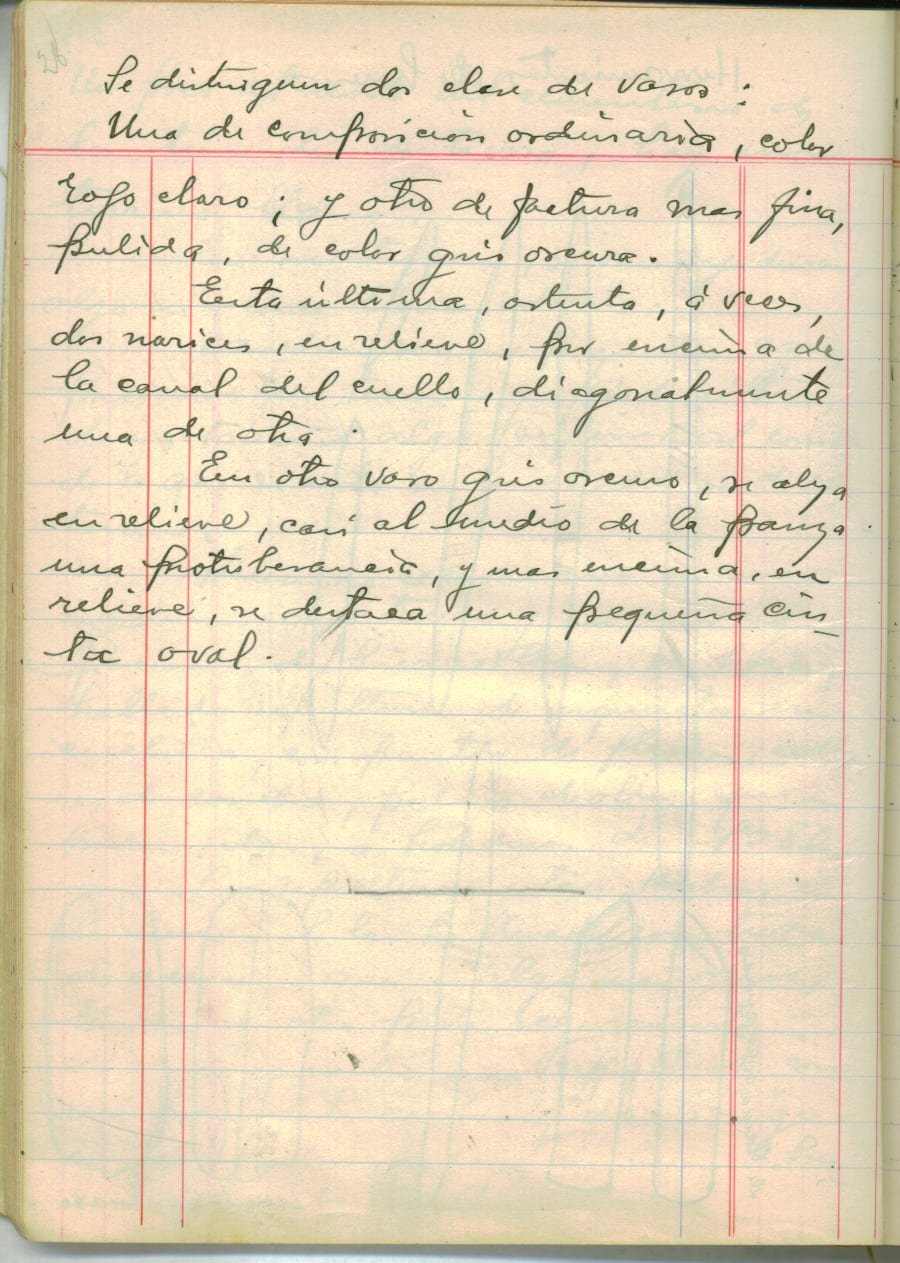 26
Se distinguen dos clase de vasos:
Una de composición ordinaria, color
rojo claro; y otro de factura mas fina,
pulida, de color gris oscura.
Esta última, ostenta, á veces,
dos narices, en relieve, por encima de
la canal del cuello, diagonalmente
una de otra.
En otro vaso gris oscuro, se alza
en relieve, casi al medio de la panza
una protuberancia, y mas encima, en
relieve, se destaca una pequeña cin-
ta oval.